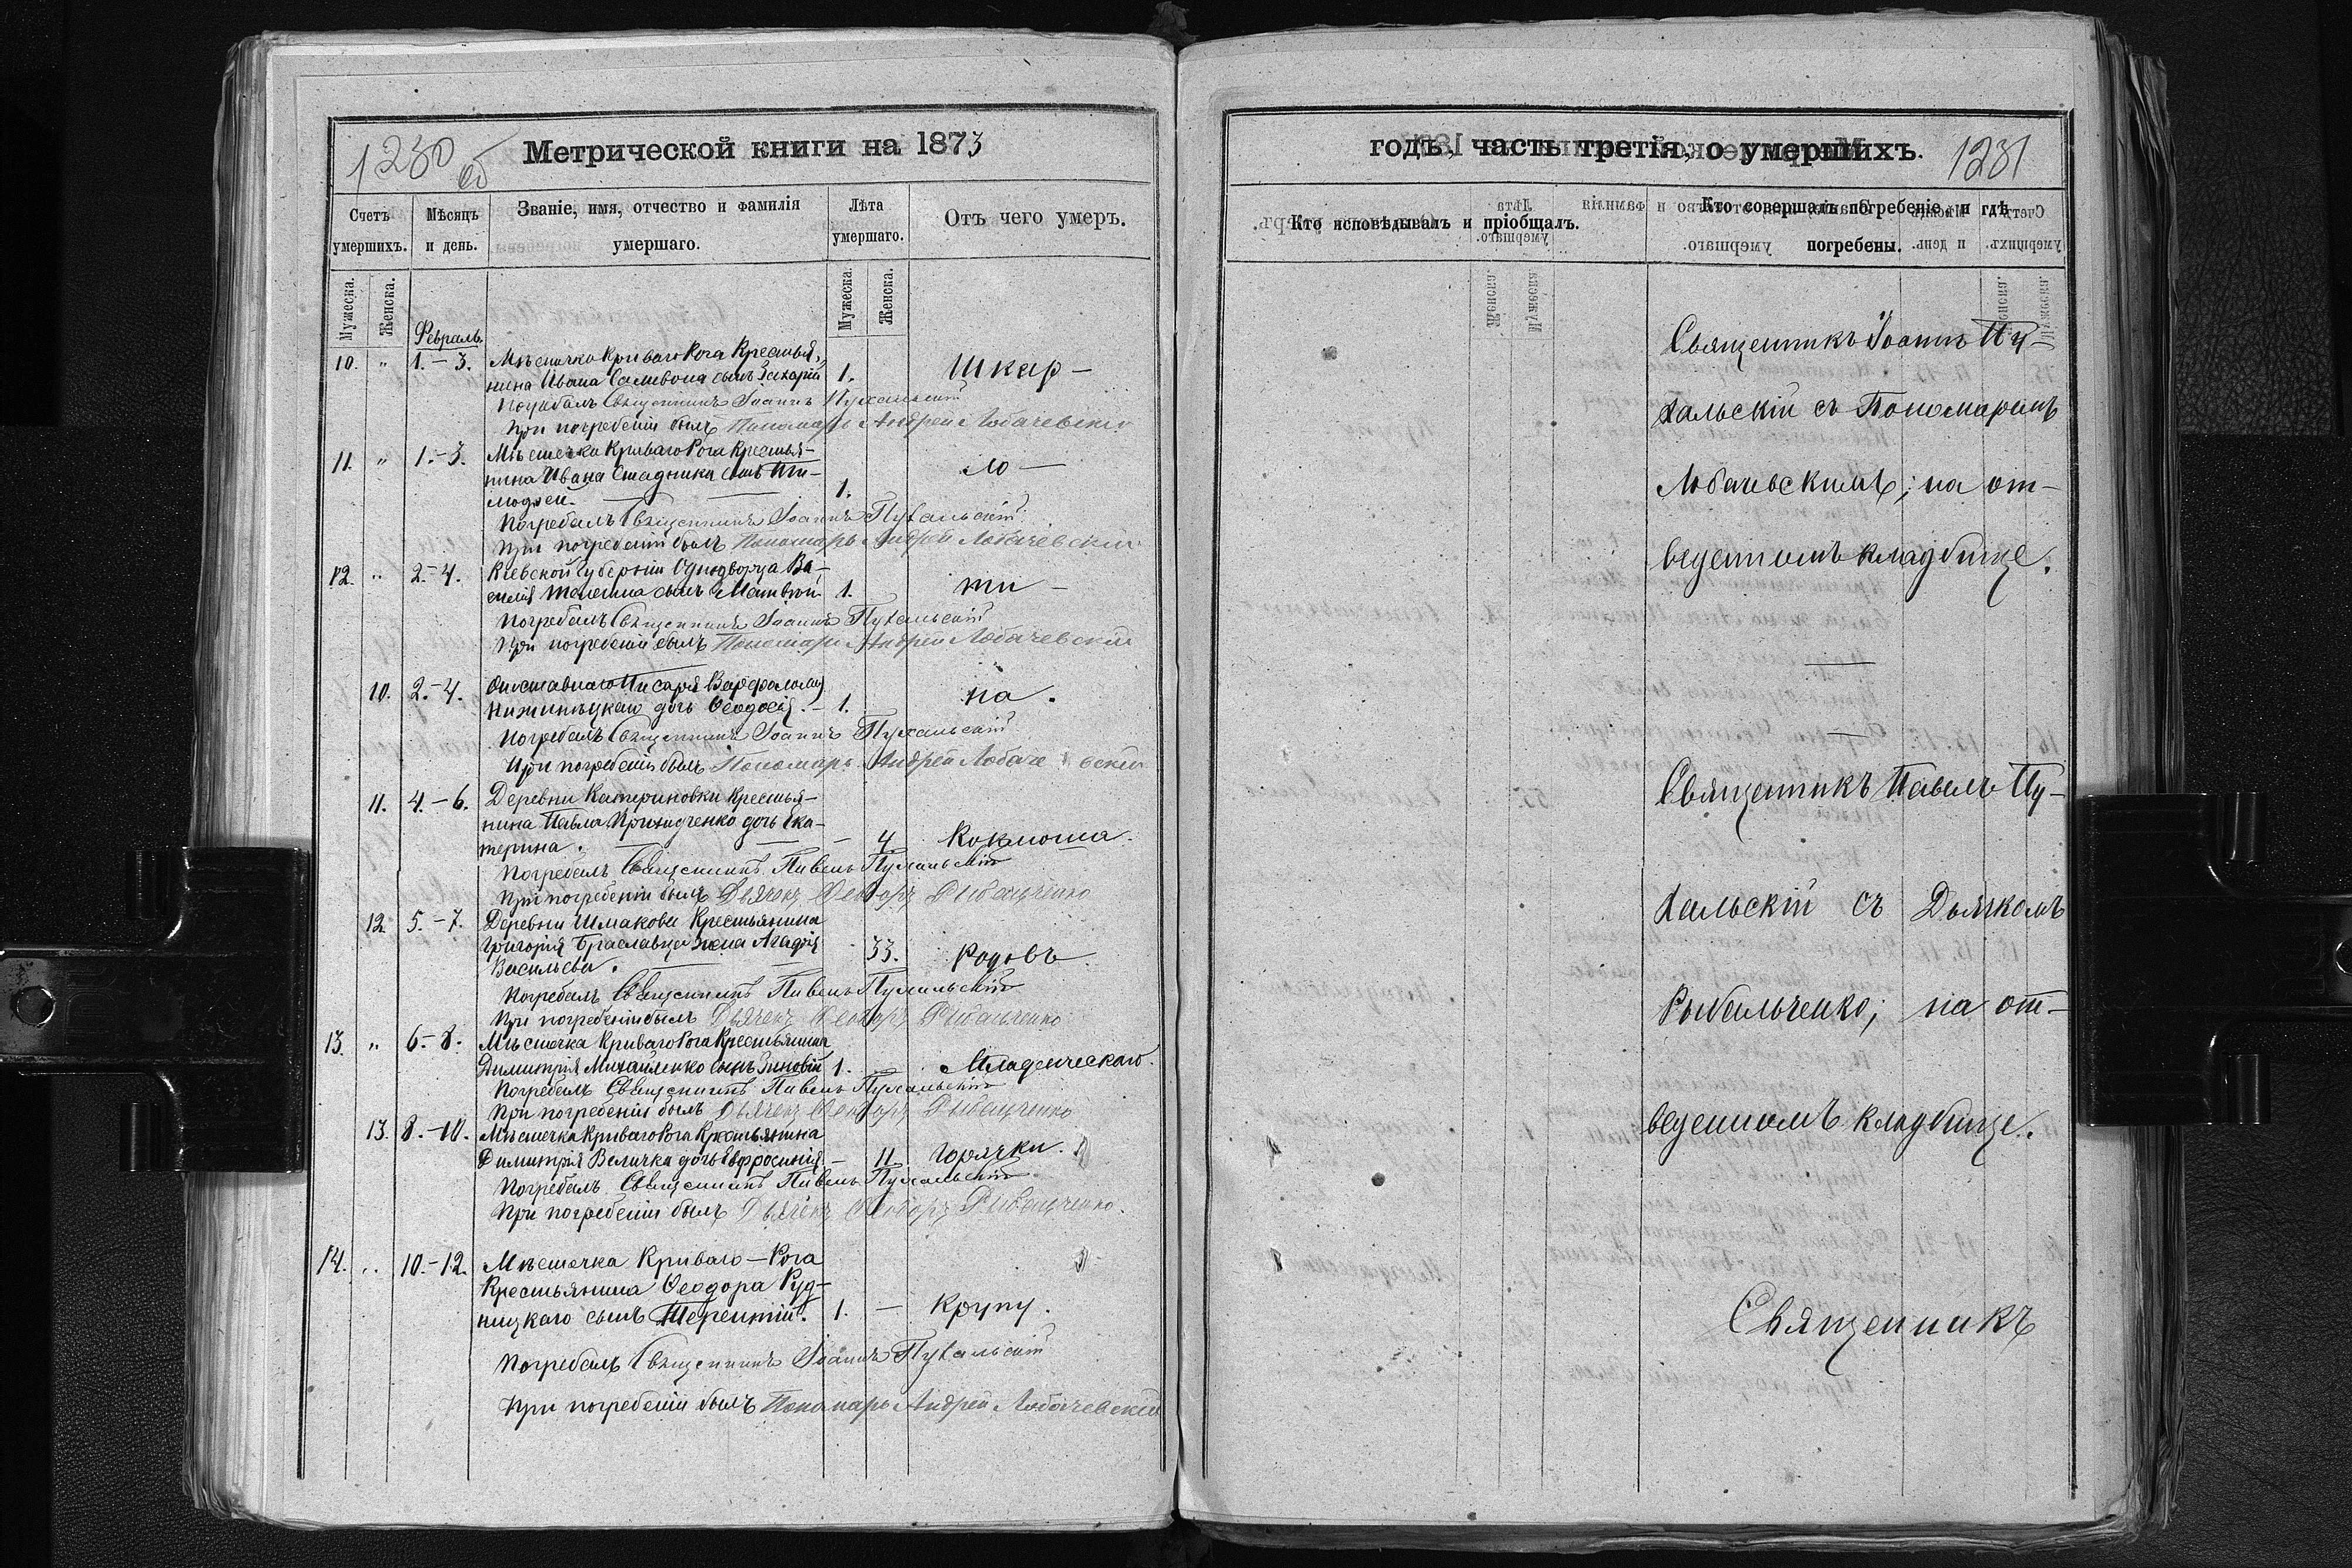 1230 об
Метрической книги на 1873
Счетъ умершихъ.
Мѣсяцъ и день.
Званіе, имя, отчество и фамилія умершаго.
Лѣта умершаго.
Отъ чего умеръ.
Мужеска.
Женска.
Мужеска.
Женска.
Февраль.
10. " 1.-3. Мѣстечка Криваго Рога Крестья-
нина Ивана Саливона сынъ Захарій 1. Шкар-
Погребалъ Священникъ Іоаннъ Пухальскій
При погребеніи былъ Пономарь Андрей Лобачевскій
11. " 1.-3. Мѣстечка Криваго Рога Крестья-
нина Ивана Стадника сынъ Ти- ло-
мофей. 1.
Погребалъ Священникъ Іоаннъ Пухальскій
При погребеніи былъ Пономарь Андрей Лобачевскій
12. " 2.-4. Кіевской Губерніи Однодворца Ва-
силія сынъ Матвѣй 1. ти-
Погребалъ Священникъ Іоаннъ Пухальскій
При погребеніи былъ Пономарь Андрей Лобачевскій
10. 2.-4. Писаря Варфоломея
дочь Ѳеодосія. - 1. на.
Погребалъ Священникъ Іоаннъ Пухальскій
При погребеніи былъ Пономарь Андрей Лобачевскій
11. 4.-6. Деревни Катериновки Крестья-
нина Павла Приходченко дочь Ека-
терина. - 4 Коклюша.
Погребалъ Священникъ Павелъ Пухальскій
При погребеніи былъ Дьячекъ Ѳеодоръ Рибальченко
12 5.-7. Деревни Шмаковой Крестьянина
Григорія Браславца жена Агафія
Васильева. 33. Родовъ
Погребалъ Священникъ Павелъ Пухальскій
При погребеніи былъ Дьячекъ Ѳеодоръ Рибальченко
13. " 6.-8. Мѣстечка Криваго Рога Крестьянина
Димитрія Михайленко сынъ Зиновій 1. - Младенческаго.
Погребалъ Священникъ Павелъ Пухальскій
При погребеніи былъ Дьячекъ Ѳеодоръ Рибальченко
13. 8.-10. Мѣстечка Криваго Рога Крестьянина
Димитрія Величка дочь Евфросинія - 11 Горячки.
Погребалъ Священникъ Павелъ Пухальскій
При погребеніи былъ Дьячекъ Ѳеодоръ Рибальченко.
14. " 10.-12. Мѣстечка Криваго-Рога
Крестьянина Ѳеодора Руд-
ницкаго сынъ Терентій. 1. - Крупу.
Погребалъ Священникъ Іоаннъ Пухальскій
При погребеніи былъ Пономарь Андрей Лобачевскій
годъ, часть третія, о умершихъ.
1231
Кто исповѣдывалъ и пріобщалъ.
Кто совершалъ погребеніе и гдѣ погребены.
Священникъ Іоаннъ Пу-
хальскій съ Пономаремъ
Лобачевскимъ; на от-
веденномъ кладбище.
Священникъ Павелъ Пу-
хальскій съ Дьячкомъ
Рыбальченко; на от-
веденномъ кладбище.
Священникъ